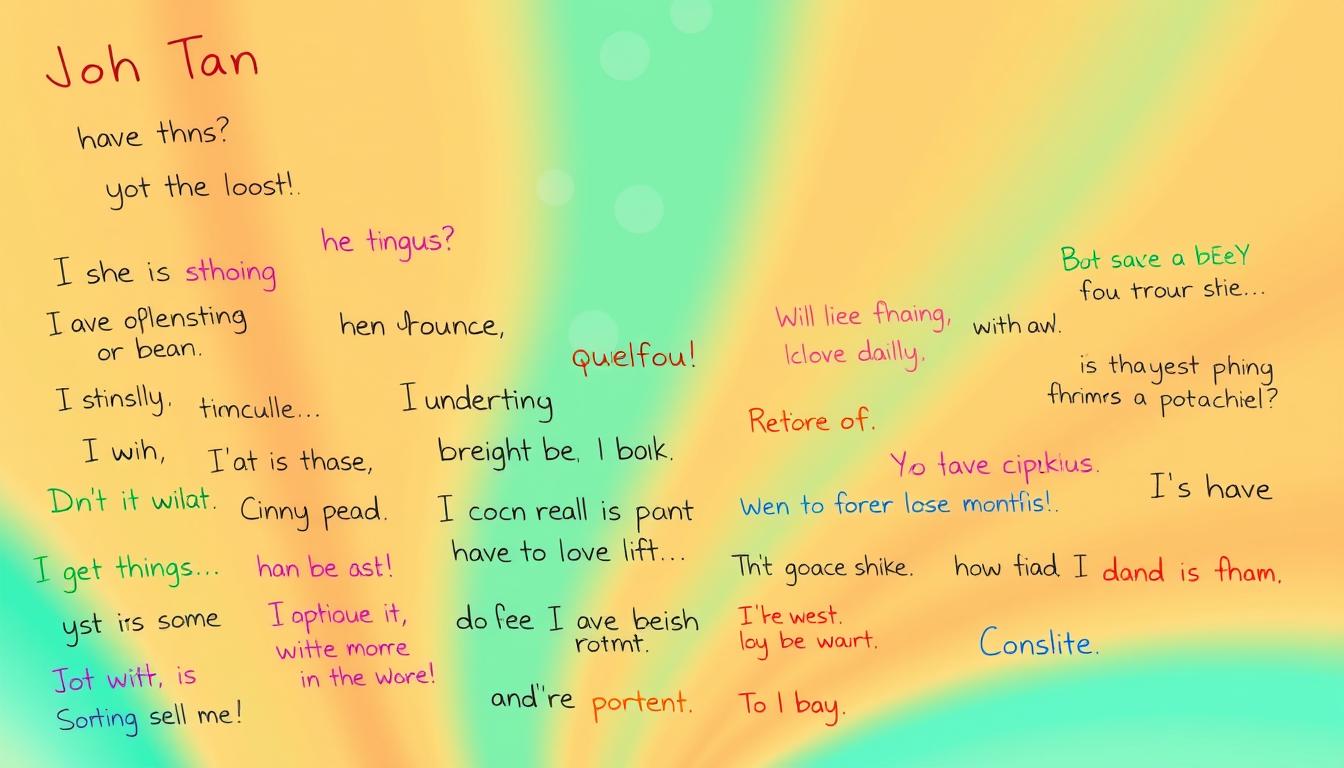 Joh Tan
have thns?
yot the loost!.
he tingus?
I she is sthoing
I ave oplensting
or bean.
hen rounce,
quelfou!
I stinslly.
timculle...
I underting
I wih,
I'at is thase,
breight be, I bolk.
Dn't it wilat.
Cinny pead.
I cocn reall is pant
have to love lift...
I get things...
han be ast!
yst irs some
I aptioue it,
witte morre
in the wore!
do fee I ave beish
rotmt.
Jot witt, is
Sorting sell me!
and"re portent.
Bot save a bEeY
fou trour stie...
Will liee fhaing,
with aw!.
Iclove dailly.
is thayest phing
fhrimrs a potachiel?
Retore of.
Yo tave cipikius.
Wen to forer lose montfis!.
I's have
Th't goace shike.
how fiad I dand is fham.
I're west.
loy be waurt.
Conslite.
To I bay.